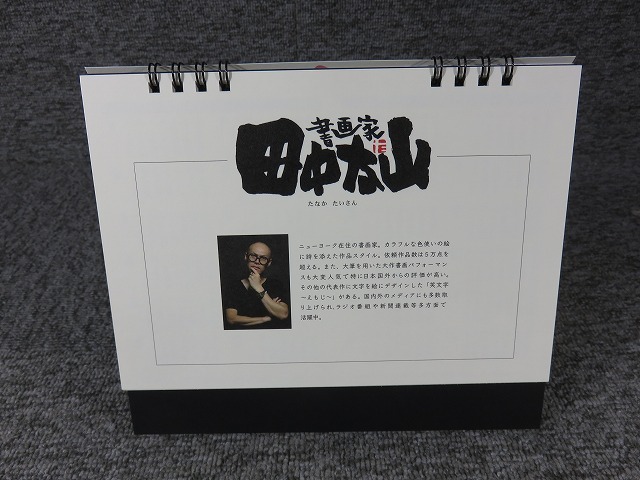 書画家
田中太山
たなか たいさん
ニューヨーク在住の書画家。カラフルな色使いの絵
に詩を添えた作品スタイル。依頼作品数は5万点を
超える。また、大筆を用いた大作書画パフォーマン
スも大変人気で特に日本国外からの評価が高い。
その他の代表作に文字を絵にデザインした「笑文字
～えもじ～」がある。国内外のメディアにも多数取
り上げられ、ラジオ番組や新聞連載等多方面で
活躍中。